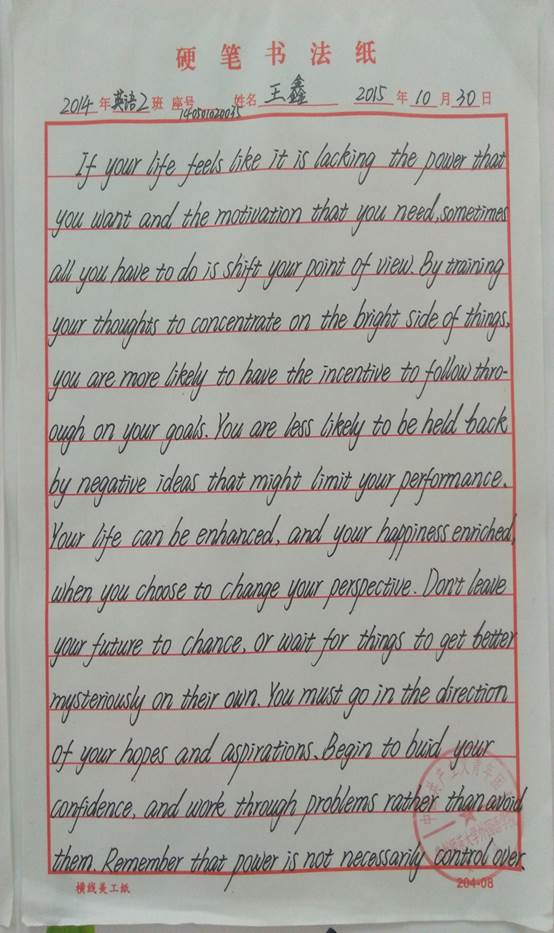 硬笔书法纸
2014年英语2班 座号 姓名 王鑫 2015年10月30日
If your life feels like it is lacking the power that
you want and the motivation that you need, sometimes
all you have to do is shift your point of view. By training
your thoughts to concentrate on the bright side of things,
you are more likely to have the incentive to follow thro-
ough on your goals. You are less likely to be held back
by negative ideas that might limit your performance.
Your life can be enhanced, and your happiness enriched,
when you choose to change your perspective. Don't leave
your future to chance, or wait for things to get better
mysteriously on their own. You must go in the direction
of your hopes and aspirations. Begin to buid your
confidence, and work through problems rather than avoid
them. Remember that power is not necessarily control over.
横线美工纸 204-08